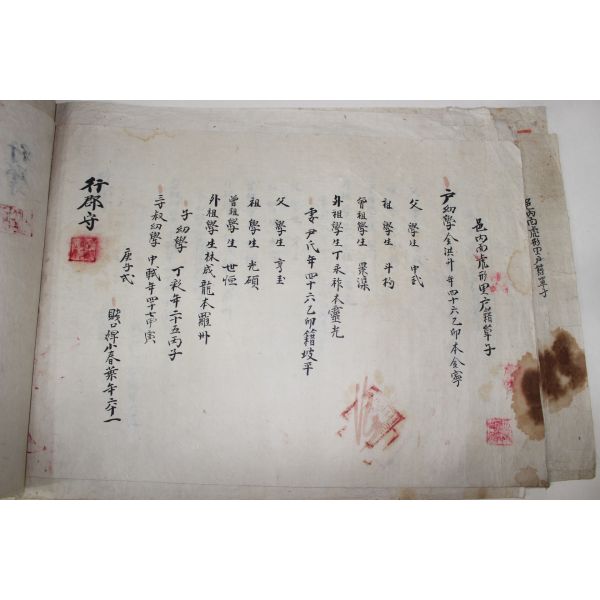 邑內南虎形里戶籍單子
戶幼學金洪升年四十六乙卯本金寧
父 學生 中武
祖 學生 斗杓
曾祖 學生
外祖學生丁永祚本靈光
妻尹氏年四十六乙卯籍坡平
父 學生 亨圭
祖 學生 光碩
曾祖學生 世恒
外祖學生林成龍本羅州
子幼學 丁彩年二十五丙子
三寸叔幼學 中軾年四十七甲寅
賤口婢小春葉年六十一
庚子式
行郡守
邑內南虎形里戶籍單子